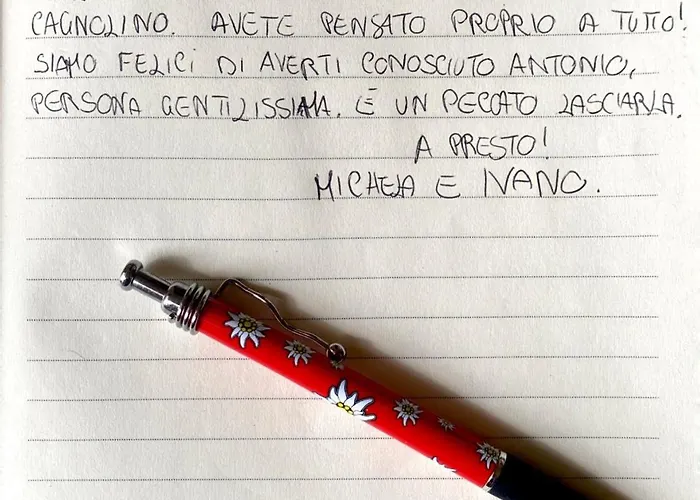 CAGNOLINO. AVETE PENSATO PROPRIO A TUTTO!
SIAMO FELICI DI AVERTI CONOSCIUTO ANTONIO,
PERSONA GENTILISSIMA. È UN PECCATO LASCIARLA.
A PRESTO!
MICHELA E IVANO.